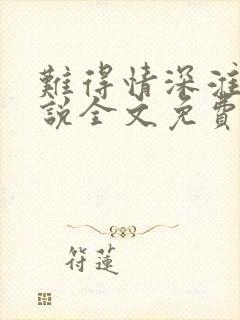 難得情深淮
說全文免費
符蓮